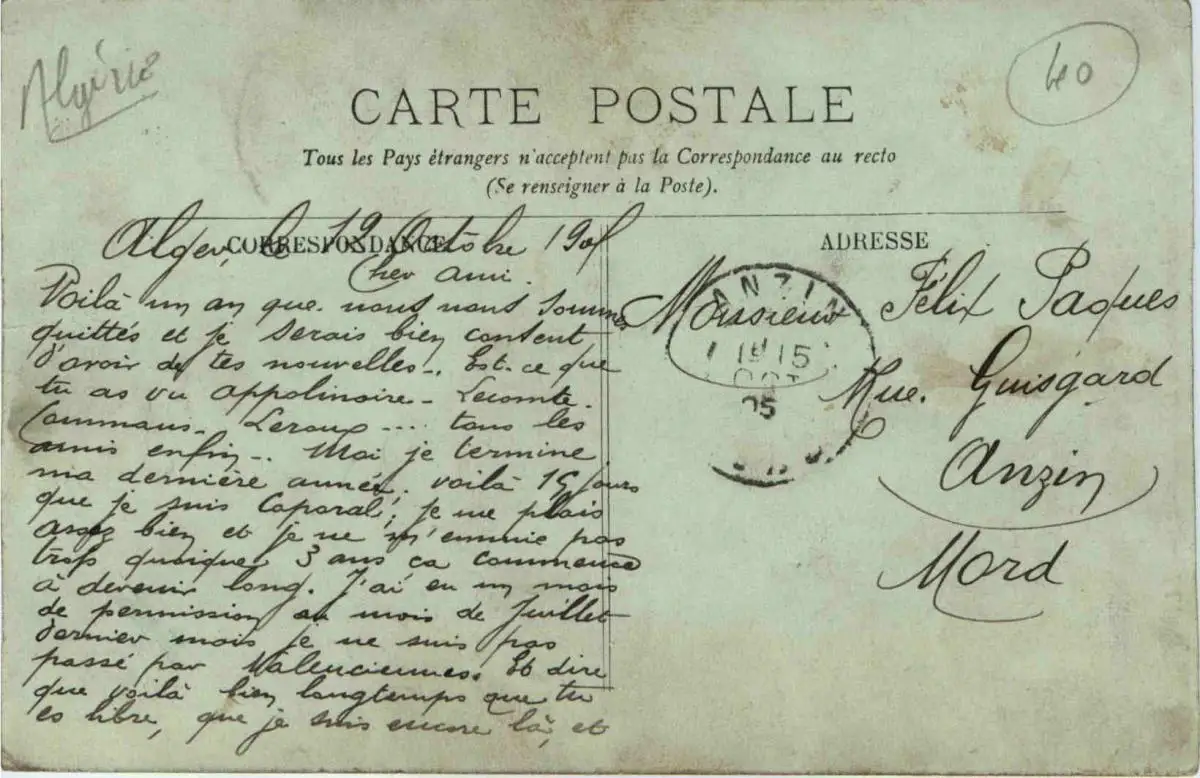 Algérie
40
CARTE POSTALE
Tous les Pays étrangers n'acceptent pas la Correspondance au recto
(Se renseigner à la Poste).
CORRESPONDANCE
Alger, le 12 Octobre 1905
Cher ami.
Voilà un an que nous nous sommes
quittés et je serais bien content
d'avoir de tes nouvelles. Est-ce que
tu as vu Appolinoire - Lecomte.
Leroux.... tous les
amis enfin.. Moi je termine
ma dernière année, voilà 15 jours
que je suis Caporal, je me plais
assez bien et je ne m'ennuie pas
trop quoique 3 ans ca commence
à devenir long. J'ai eu un mois
de permission au mois de Juillet
dernier mais je ne suis pas
passé par Valenciennes. Et dire
que voilà bien longtemps que tu
es libre, que je suis encore là, et
ADRESSE
Monsieur Félix Paques
Rue. Guisgard
Anzin
Nord
ANZIN
15
OCT
05